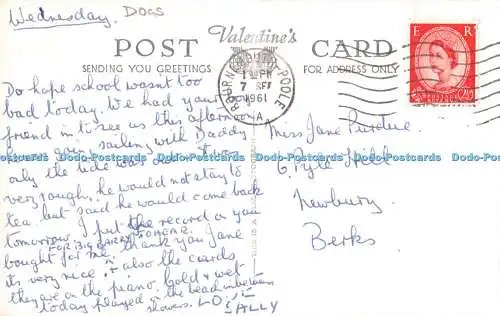 Wednesday. DOGS
Valentine's
POST CARD
SENDING YOU GREETINGS
FOR ADDRESS ONLY
E R
2½D
BOURNE POOLE
1 PM
7 SEP
1961
A
Do hope school wasn't too
bad today. We had your
friend in to see us this afternoon
he was going sailing with Daddy
only the tide was out & it was
very rough, he would not stay to
tea but said he would come back
tomorrow. I put the record on you
FOR BIG GARRY TO HONE.
bought for me, thank you Jane
its very nice, & also the cards
they are on the piano. Cold & wet
today played on the beach inbetween
showers. LOVE
SALLY
Miss Jane Purdue
6, Pyle Hill
Newbury
Berks
Dodo-Postcards Dodo-Postcards Dodo-Postcards Dodo-Postcards Dodo-Postcards